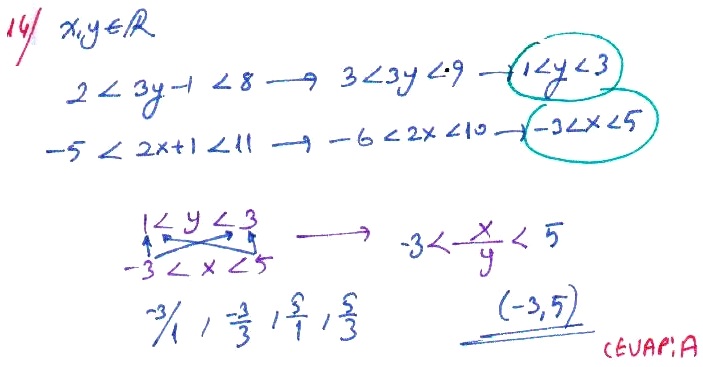 14/ x,y∈ℝ
2 < 3y-1 < 8 → 3<3y<9 → 1<y<3
-5 < 2x+1 < 11 → -6<2x<10 → -3<x<5
1< y <3 → -3< x/y < 5
-3 < x <5
-3/1 , -3/3 , 5/1 , 5/3 (-3,5)
CEVAP:A